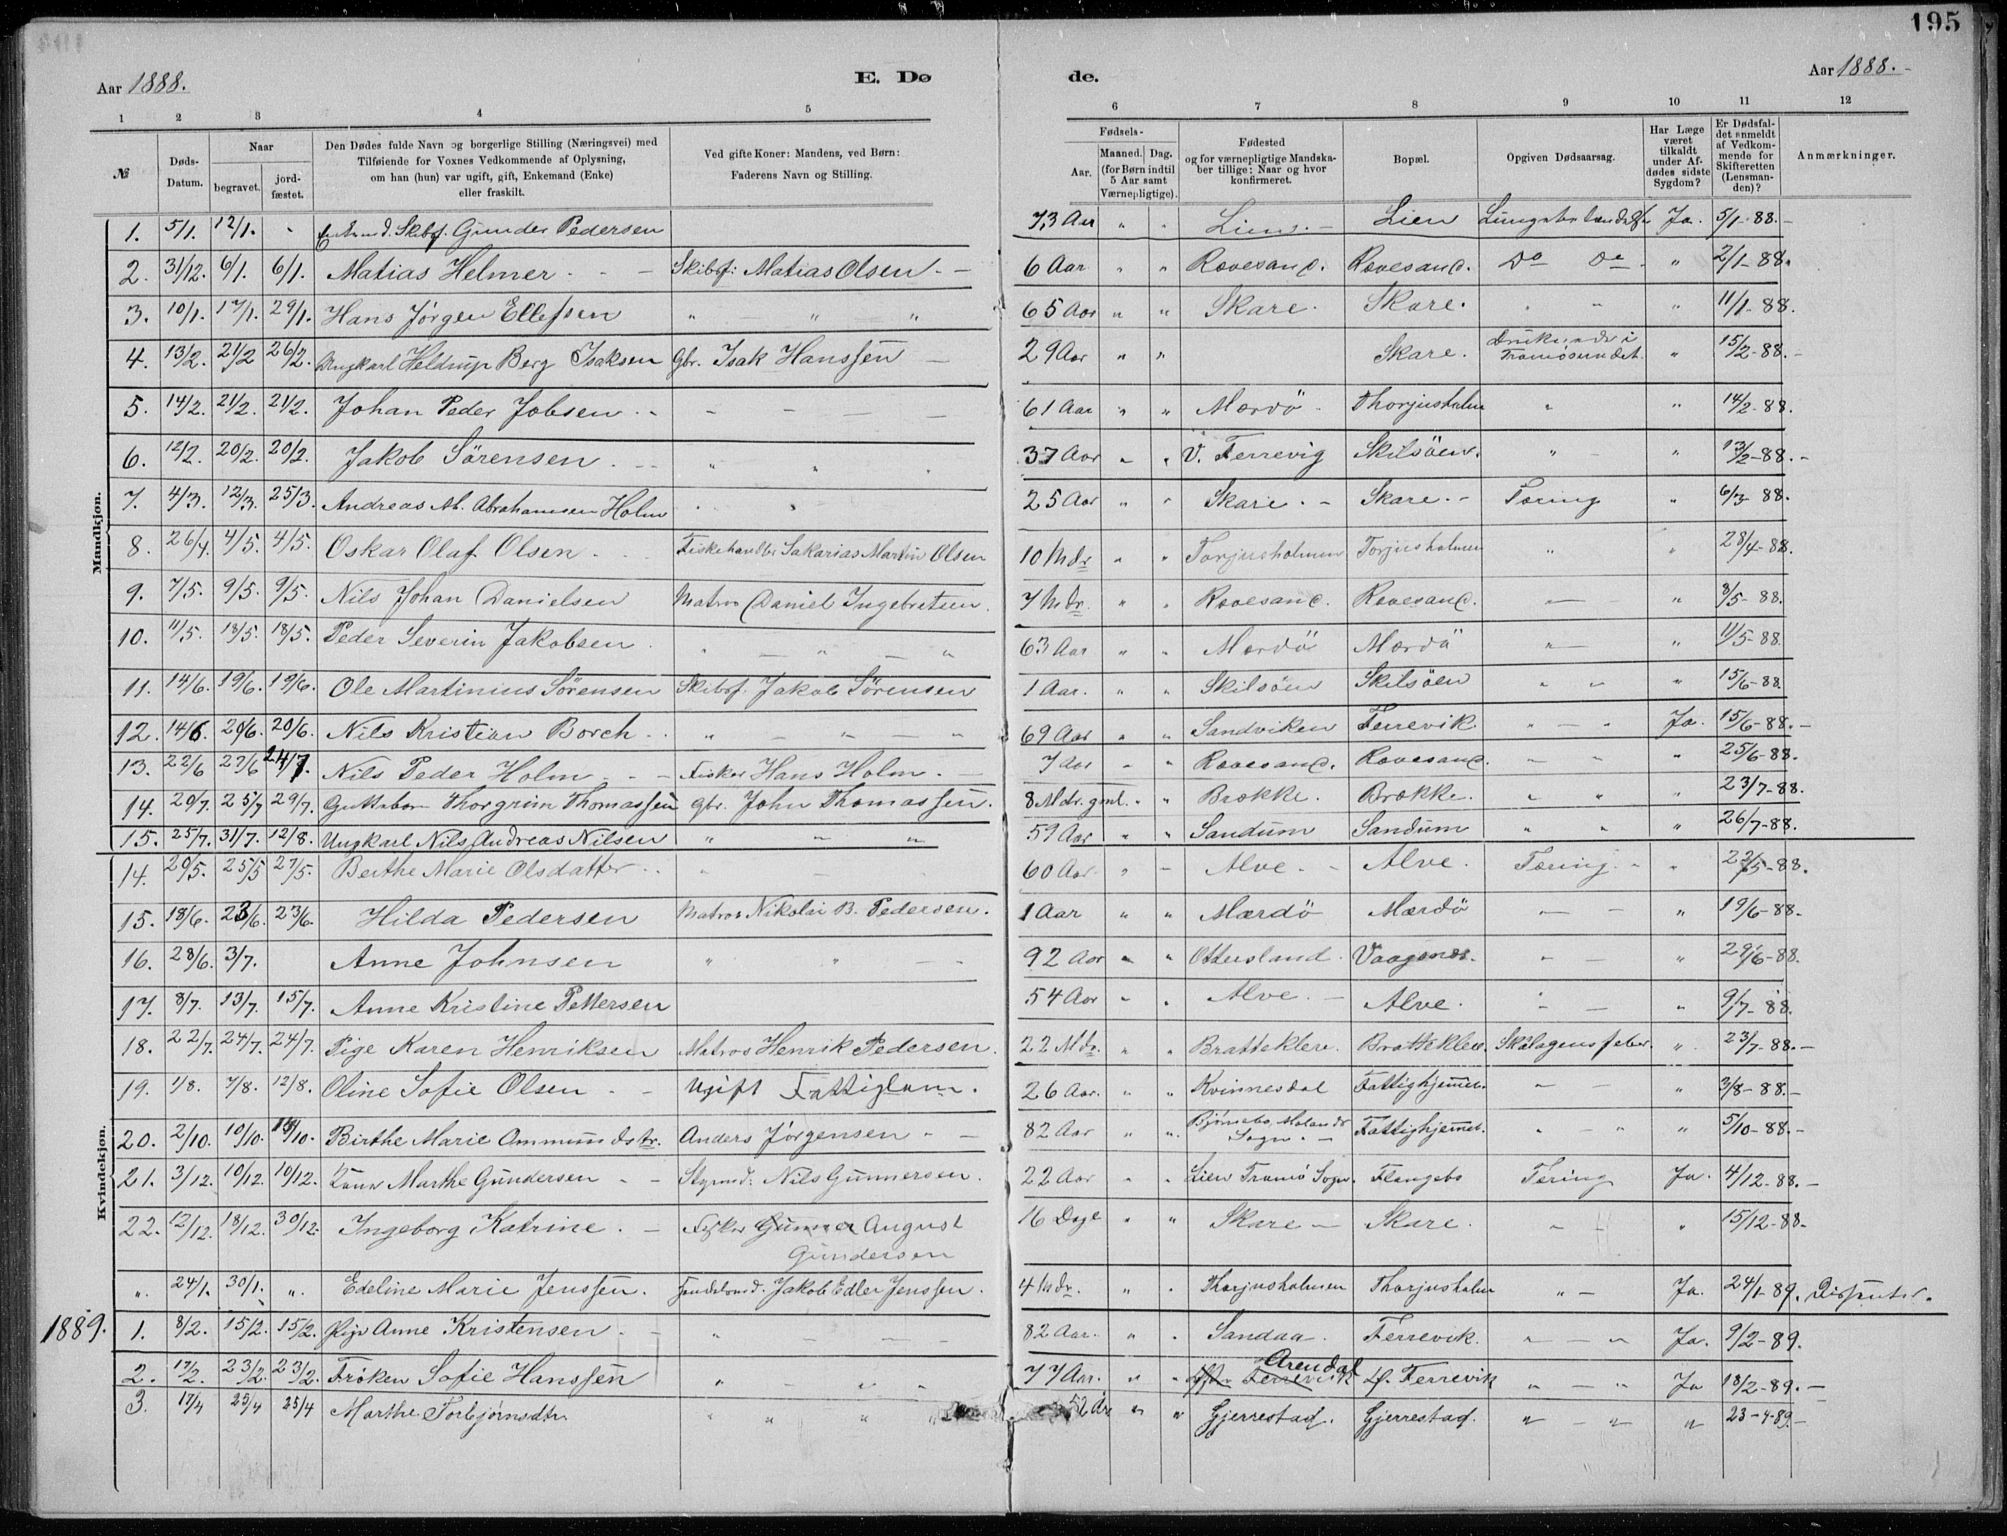 195
Aar 1888.
E. Dø de.
Aar 1888.
1 2 3 4 5 6 7 8 9 10 11 12
№
Døds-Datum.
Naar
begravet.
jord-fæstet.
Den Dødes fulde Navn og borgerlige Stilling (Næringsvei) med
Tilføiende for Voxnes Vedkommende af Oplysning,
om han (hun) var ugift, gift, Enkemand (Enke)
eller fraskilt.
Ved gifte Koner: Mandens, ved Børn:
Faderens Navn og Stilling.
Fødsels-
Aar.
Maaned. Dag.
(for Børn indtil
5 Aar samt
Værnepligtige).
Fødested
og for værnepligtige Mandska-
ber tillige: Naar og hvor
konfirmeret.
Bopæl.
Opgiven Dødsaarsag.
Har Læge
været
tilkaldt
under Af-
dødes sidste
Sygdom?
Er Dødsfal-
det anmeldt
af Vedkom-
mende for
Skifteretten
(Lensman-
den)?
Anmærkninger.
Mandkjøn.
1. 5/1. 12/1. " Skibsf. Gunder Pedersen 73 Aar " " Liens. Lien Ja. 5/1-88.
2. 31/12. 6/1. 6/1. Matias Helmer Skibsf: Matias Olsen 6 Aar " " Rævesand. Rævesand. Do Do " 2/1-88.
3. 10/1. 17/1. 29/1. Hans Jørgen Ellefsen " " " 65 Aar " " Skare. Skare. " " " 11/1-88.
4. 13/2. 21/2 26/2. Ungkarl Heldrup Berg Isaksen Gbr. Isak Hanssen 29 Aar " " Skare. Druknede i Tromøsundet. " 15/2-88.
5. 14/2. 21/2. 21/2. Johan Peder Jobsen 61 Aar " " Mærdö Thorjusholm " " 14/2-88.
6. 12/2. 20/2. 20/2. Jakob Sörensen " " " 37 Aar " " V. Ferrevig Skilsöen. " " 13/2-88.
7. 4/3. 12/3. 25/3. Andreas M. Abrahamsen Holm " " 25 Aar " " Skare Skare. Tæring " 6/3 88.
8. 26/4. 4/5. 4/5. Oskar Olaf Olsen Fiskehandler Sakarias Martin Olsen 10 Mdr " " Torjusholmen Torjusholmen " " 28/4-88.
9. 7/5. 9/5. 9/5. Nils Johan Danielsen Matros Daniel Ingebretsen. 7 Mdr. " " Rævesand. Rævesand. " 8/5-88.
10. 11/5. 18/5. 18/5. Peder Severin Jakobsen " " " 63 Aar " " Mærdö Mærdö " " 11/5-88
11. 14/6. 19/6. 19/6. Ole Martinius Sörensen Skibsf. Jakob Sörensen 1 Aar. " " Skilsöen Skilsöen " " " 15/6-88.
12. 14/6. 20/6. 20/6. Nils Kristian Borch " " " 69 Aar " " Sandviken Ferrevik " " Ja. 15/6-88.
13. 22/6 27/6 24/7. Nils Peder Holm Fisker Hans Holm. 7 Aar " " Rævesand. Rævesand. " " " 25/6-88.
14. 20/7. 25/7 29/7. Guttebarn Thorgrim Thomassen gbr. John Thomassen. 8 Mdr. gml. " " Brække. Brække. " " " 23/7-88.
15. 25/7. 31/7. 12/8. Ungkarl Nils Andreas Nilsen " " " 59 Aar " " Sandum Sandum " " " 26/7-88.
Kvindekjøn.
14. 20/5. 25/5 27/5. Berthe Marie Olsdatter " 60 Aar " Alve. Alve. Tæring. " 22/5-88.
15. 18/6. 23/6. 23/6. Hilda Pedersen Matros Nikolai B. Pedersen. 1 Aar " " Mærdö Mærdö " 19/6-88.
16. 28/6. 3/7. Anne Johnsen " " 92 Aar " " Ottersland. Vaagsnes. " " 29/6-88.
17. 8/7. 13/7. 15/7. Anne Kristine Pettersen 54 Aar " " Alve. Alve. " " 9/7-88.
18. 22/7. 24/7. 24/7. Pige Karen Henriksen Matros Henrik Pedersen. 22 Mdr. " " Bratteklev. Bratteklev. Skalagensfeber. " 23/7-88.
19. 1/8. 7/8. 12/8. Oline Sofie Olsen Ugift Fattiglem. 26 Aar. " " Kvinnesdal Fattighjemmet. " 3/8-88.
20. 2/10. 10/10. 18/10. Birthe Marie Ammundsdtr. Anders Jörgensen 82 Aar " " Sogn Fattighjemmet. " " " 5/10-88.
21. 3/12. 10/12. 10/12. Marthe Gundersen Styrmd. Nils Gunnersen. 22 Aar " " Lien Tromö Sogn. Flangebo Tæring Ja. 4/12-88.
22. 12/12. 18/12. 30/12. Ingeborg Katrine. Fisker Gunner August Gundersen 16 Dage " " Skare Skare. " " 15/12-88.
" 24/1. 30/1. " Edeline Marie Jenssen. Jakob Edler Jenssen. 4 Mdr. " " Thorjusholmen Thorjusholm " Ja. 24/1-89. Dissenter.
1889. 1. 8/2. 15/2. 15/2. Pige Anne Kristensen " 82 Aar. " " Sandaa. Ferrevik. " " Ja. 9/2-89.
2. 17/2. 23/2. 23/2. Frøken Sofie Hanssen " " " 77 Aar. " " Ferrevik Arendal Ferrevik " " Ja 18/2-89.
3. 17/4 25/4 25/4 Marthe Torbjørnsdtr " " " " " " Gjerrestad. Gjerrestad. " " " 23-4-89.